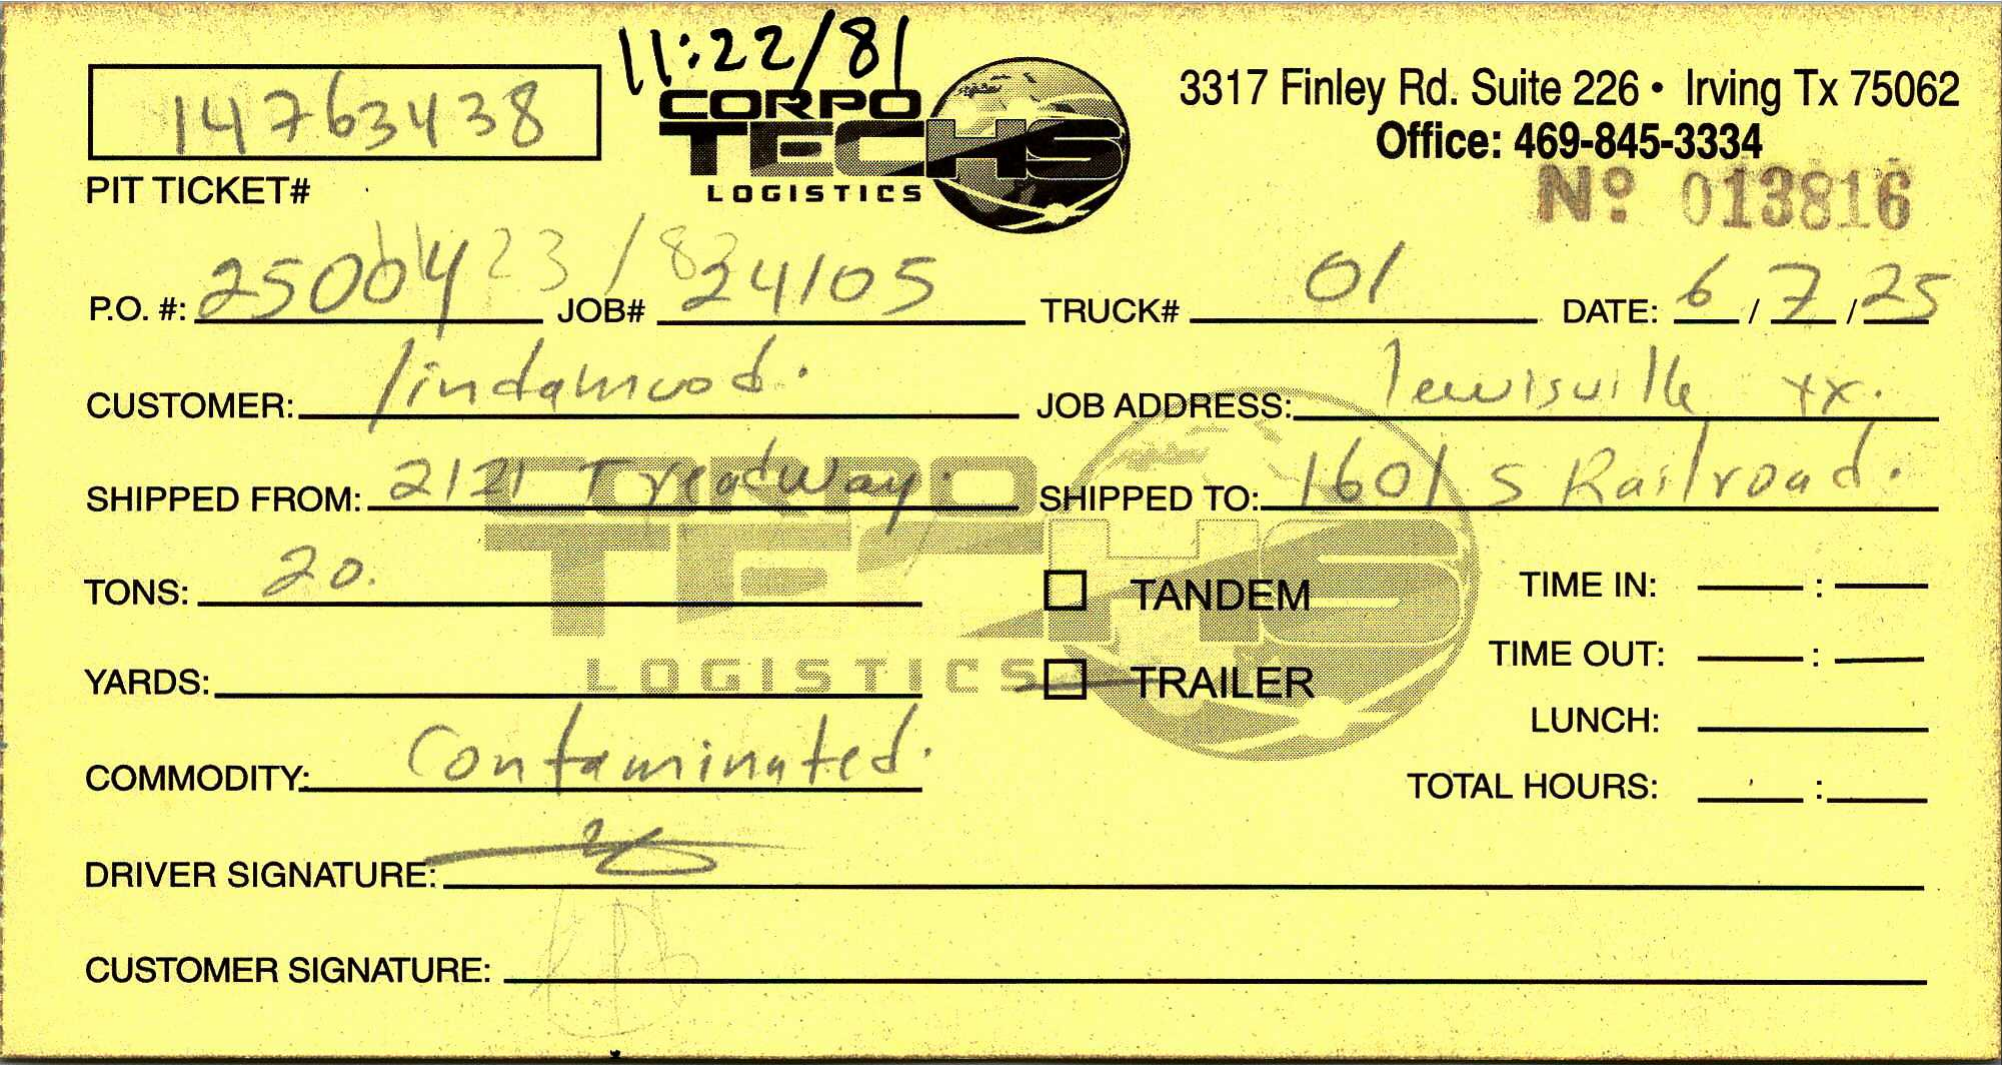 11:22/81
14763438
PIT TICKET#
CORPO
TECHS
LOGISTICS
3317 Finley Rd. Suite 226 • Irving Tx 75062
Office: 469-845-3334
Nº 013816
P.O. #: 25004 JOB# 24105 TRUCK# 01 DATE: 6 / 7 / 25
23/83
CUSTOMER: lindamood. JOB ADDRESS: lewisville tx.
SHIPPED FROM: 2121 Treadway. SHIPPED TO: 1601 S Railroad.
TONS: 20. TANDEM TIME IN: :
TIME OUT: :
YARDS: TRAILER
LUNCH:
COMMODITY: Contaminated. TOTAL HOURS: :
DRIVER SIGNATURE:
CUSTOMER SIGNATURE:
CORPO
TECHS
LOGISTICS